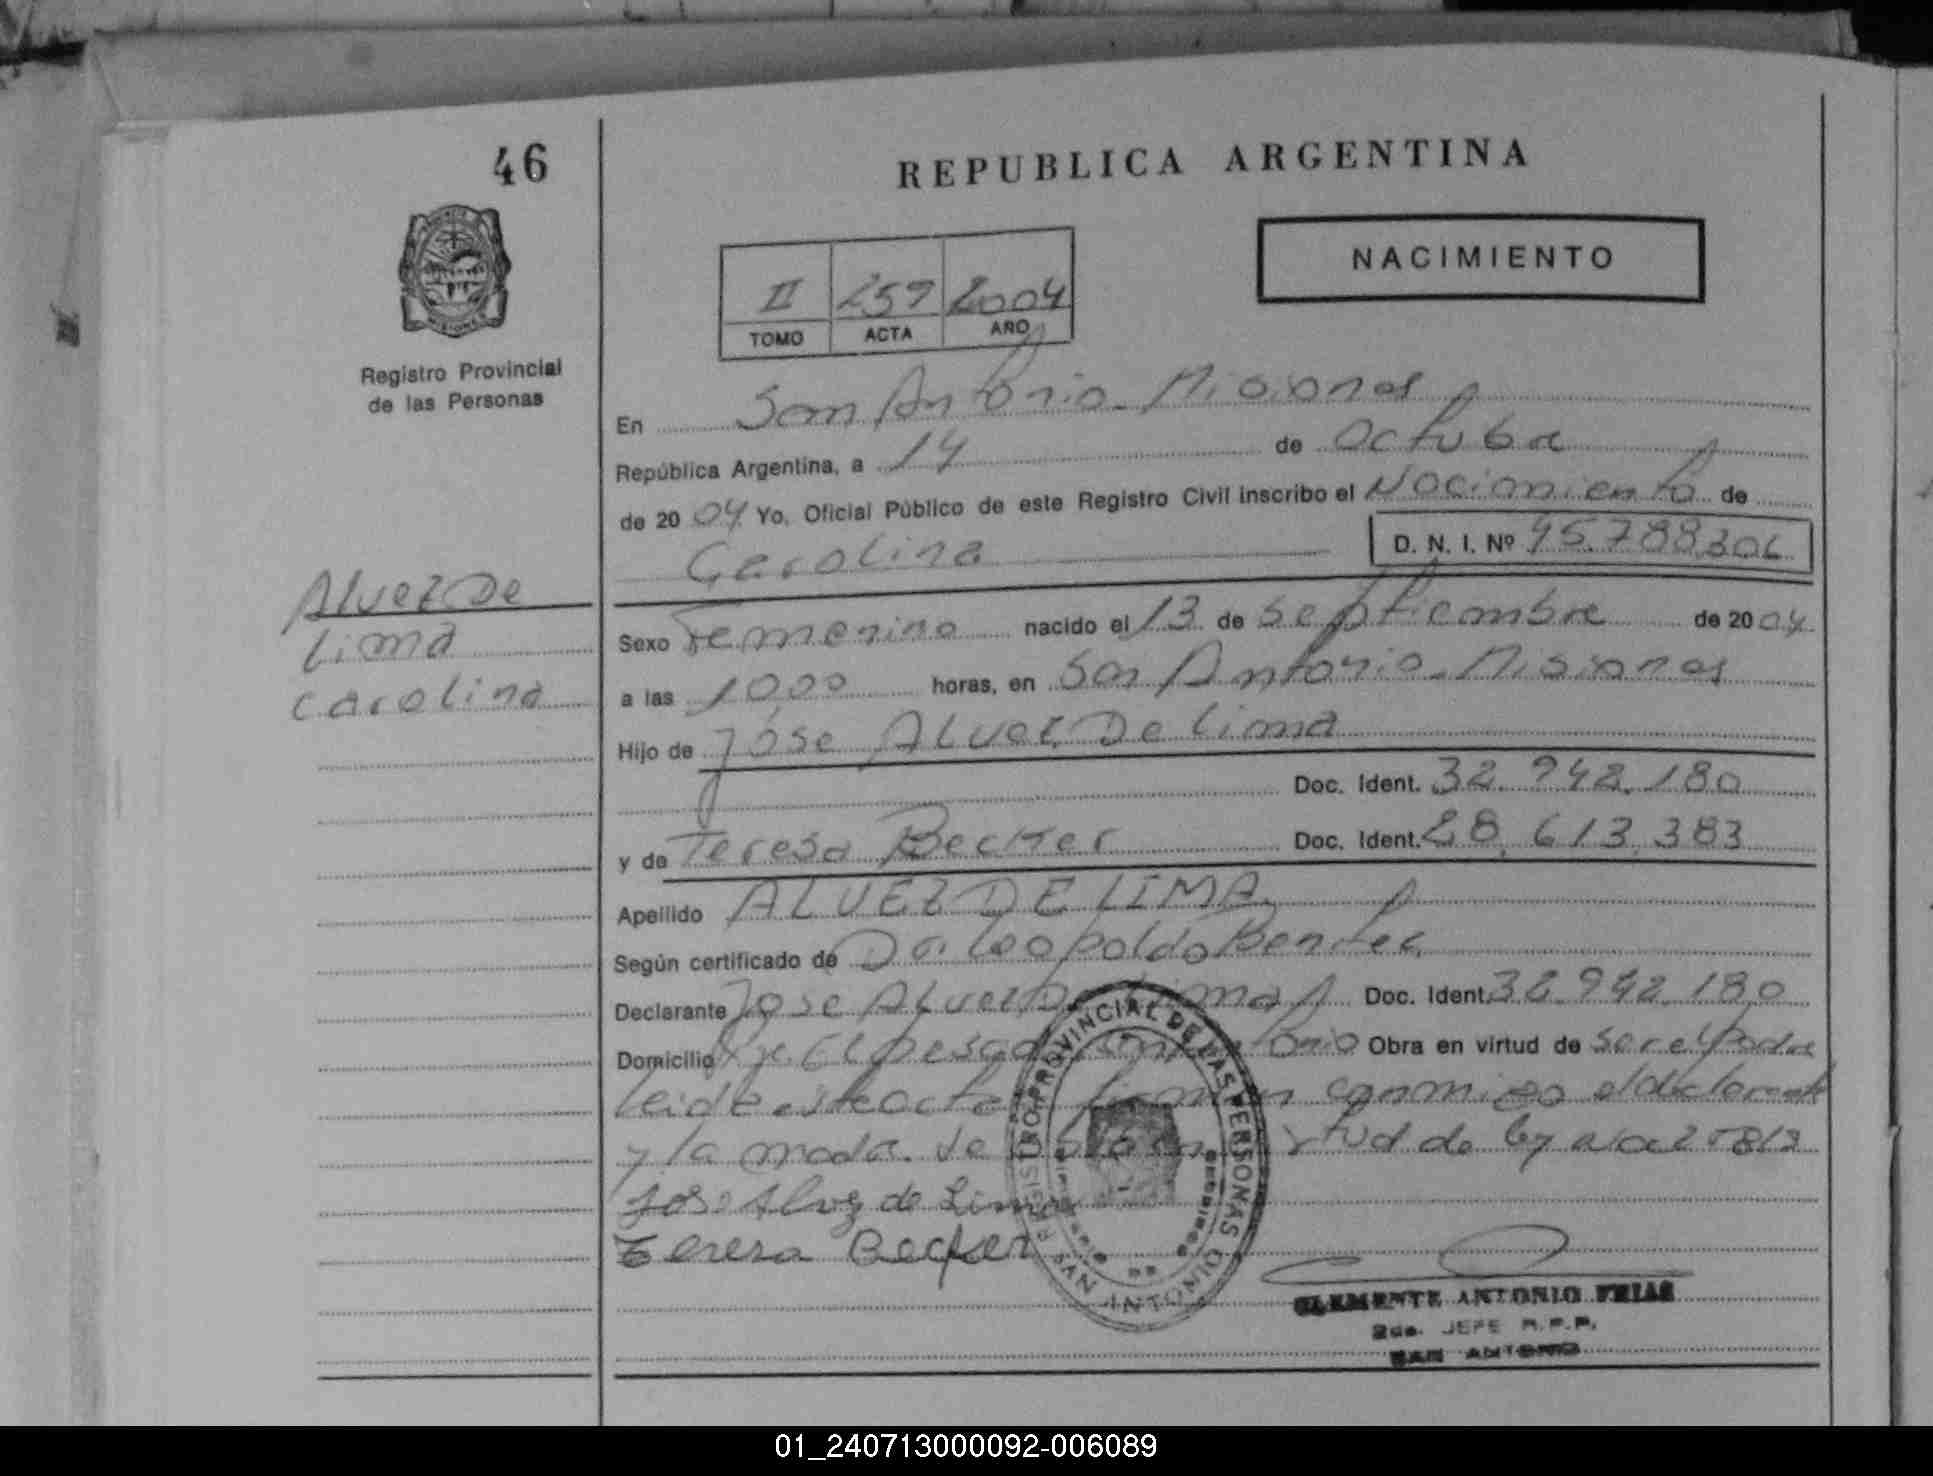 46
REPUBLICA ARGENTINA
NACIMIENTO
II 259 2004
TOMO ACTA AÑO
Registro Provincial
de las Personas
En San Antonio - Misiones
República Argentina, a 14 de Octubre
de 2004 Yo, Oficial Público de este Registro Civil inscribo el Nacimiento de
Carolina D. N. I. Nº 45.788.306
Alvez De
Lima
Carolina
Sexo Femenino nacido el 13 de Septiembre de 2004
a las 10,00 horas, en San Antonio - Misiones
Hijo de José Alvez De Lima
Doc. Ident. 32.942.180
y de Teresa Becker Doc. Ident. 28.613.383
Apellido ALVEZ DE LIMA
Según certificado de Dr. Leopoldo Benitez
Declarante Jose Alvez De Lima Doc. Ident. 32.942.180
Domicilio Obra en virtud de ser el Padre
Leida este acta firman conmigo el declarante
y la madre virtud de ley
Jose Alvez de Lima
Teresa Becker
REGISTRO PROVINCIAL DE LAS PERSONAS
SAN ANTONIO
CLEMENTE ANTONIO FRIAS
2do. JEFE R.P.P.
SAN ANTONIO
01_240713000092-006089